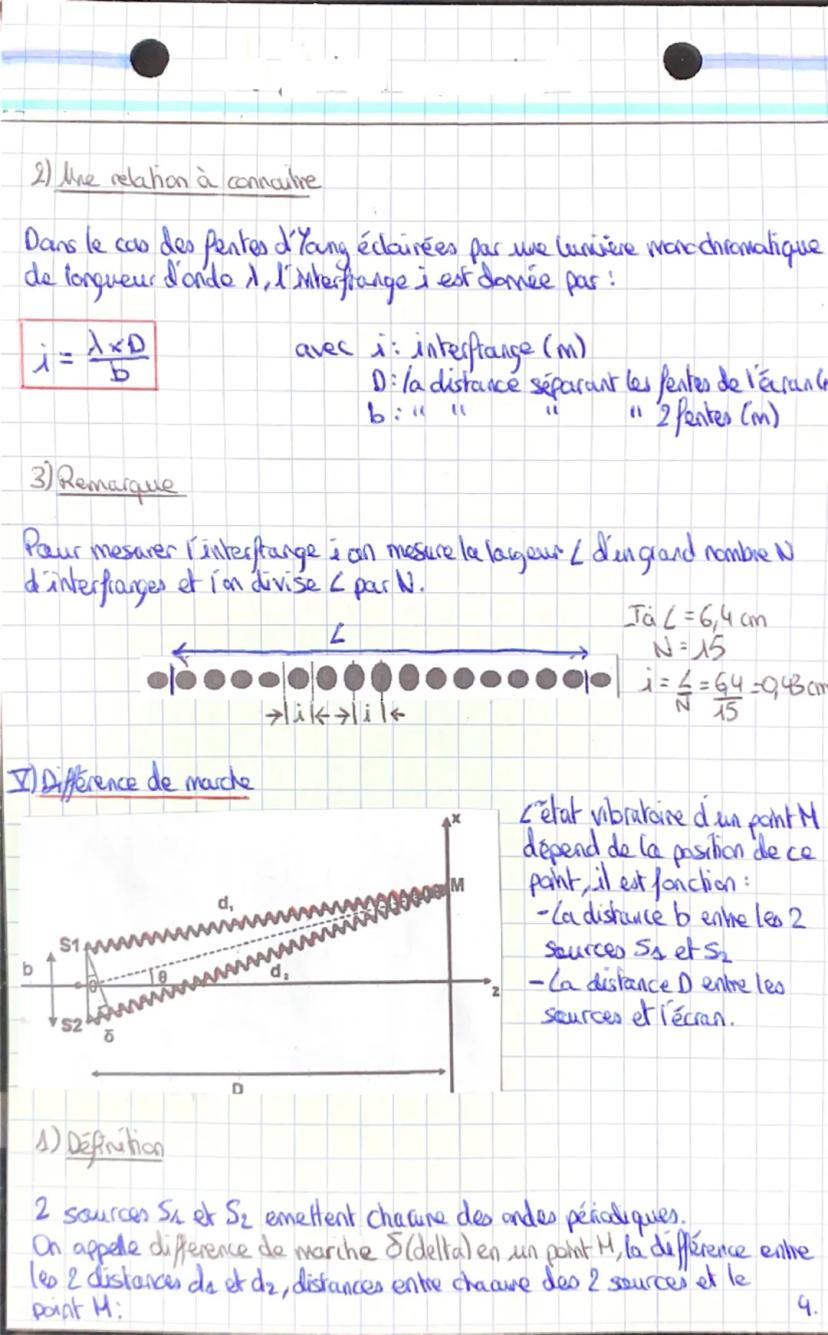 2) Une relation à connaitre
Dans le cas des fentes d'Young éclairées par une lumière monochromatique
de longueur d'onde λ, l'interfrange i est donnée par :
i = λ×D/b
avec i : interfrange (m)
D : la distance séparant les fentes de l'écran (
b : " " " " 2 fentes (m)
3) Remarque
Pour mesurer l'interfrange i on mesure la largeur L d'un grand nombre N
d'interfranges et l'on divise L par N.
L
i i
Ici L = 6,4 cm
N = 15
i = L/N = 6,4/15 = 0,43 cm
V) Différence de marche
x
M
d₁
S1
b
θ
d₂
z
S2
δ
D
L'état vibratoire d'un point M
dépend de la position de ce
point, il est fonction :
- La distance b entre les 2
sources S1 et S2
- La distance D entre les
sources et l'écran.
1) Définition
2 sources S1 et S2 emettent chacune des ondes périodiques.
On appelle difference de marche δ (delta) en un point M, la différence entre
les 2 distances d1 et d2, distances entre chacune des 2 sources et le
point M :
4.